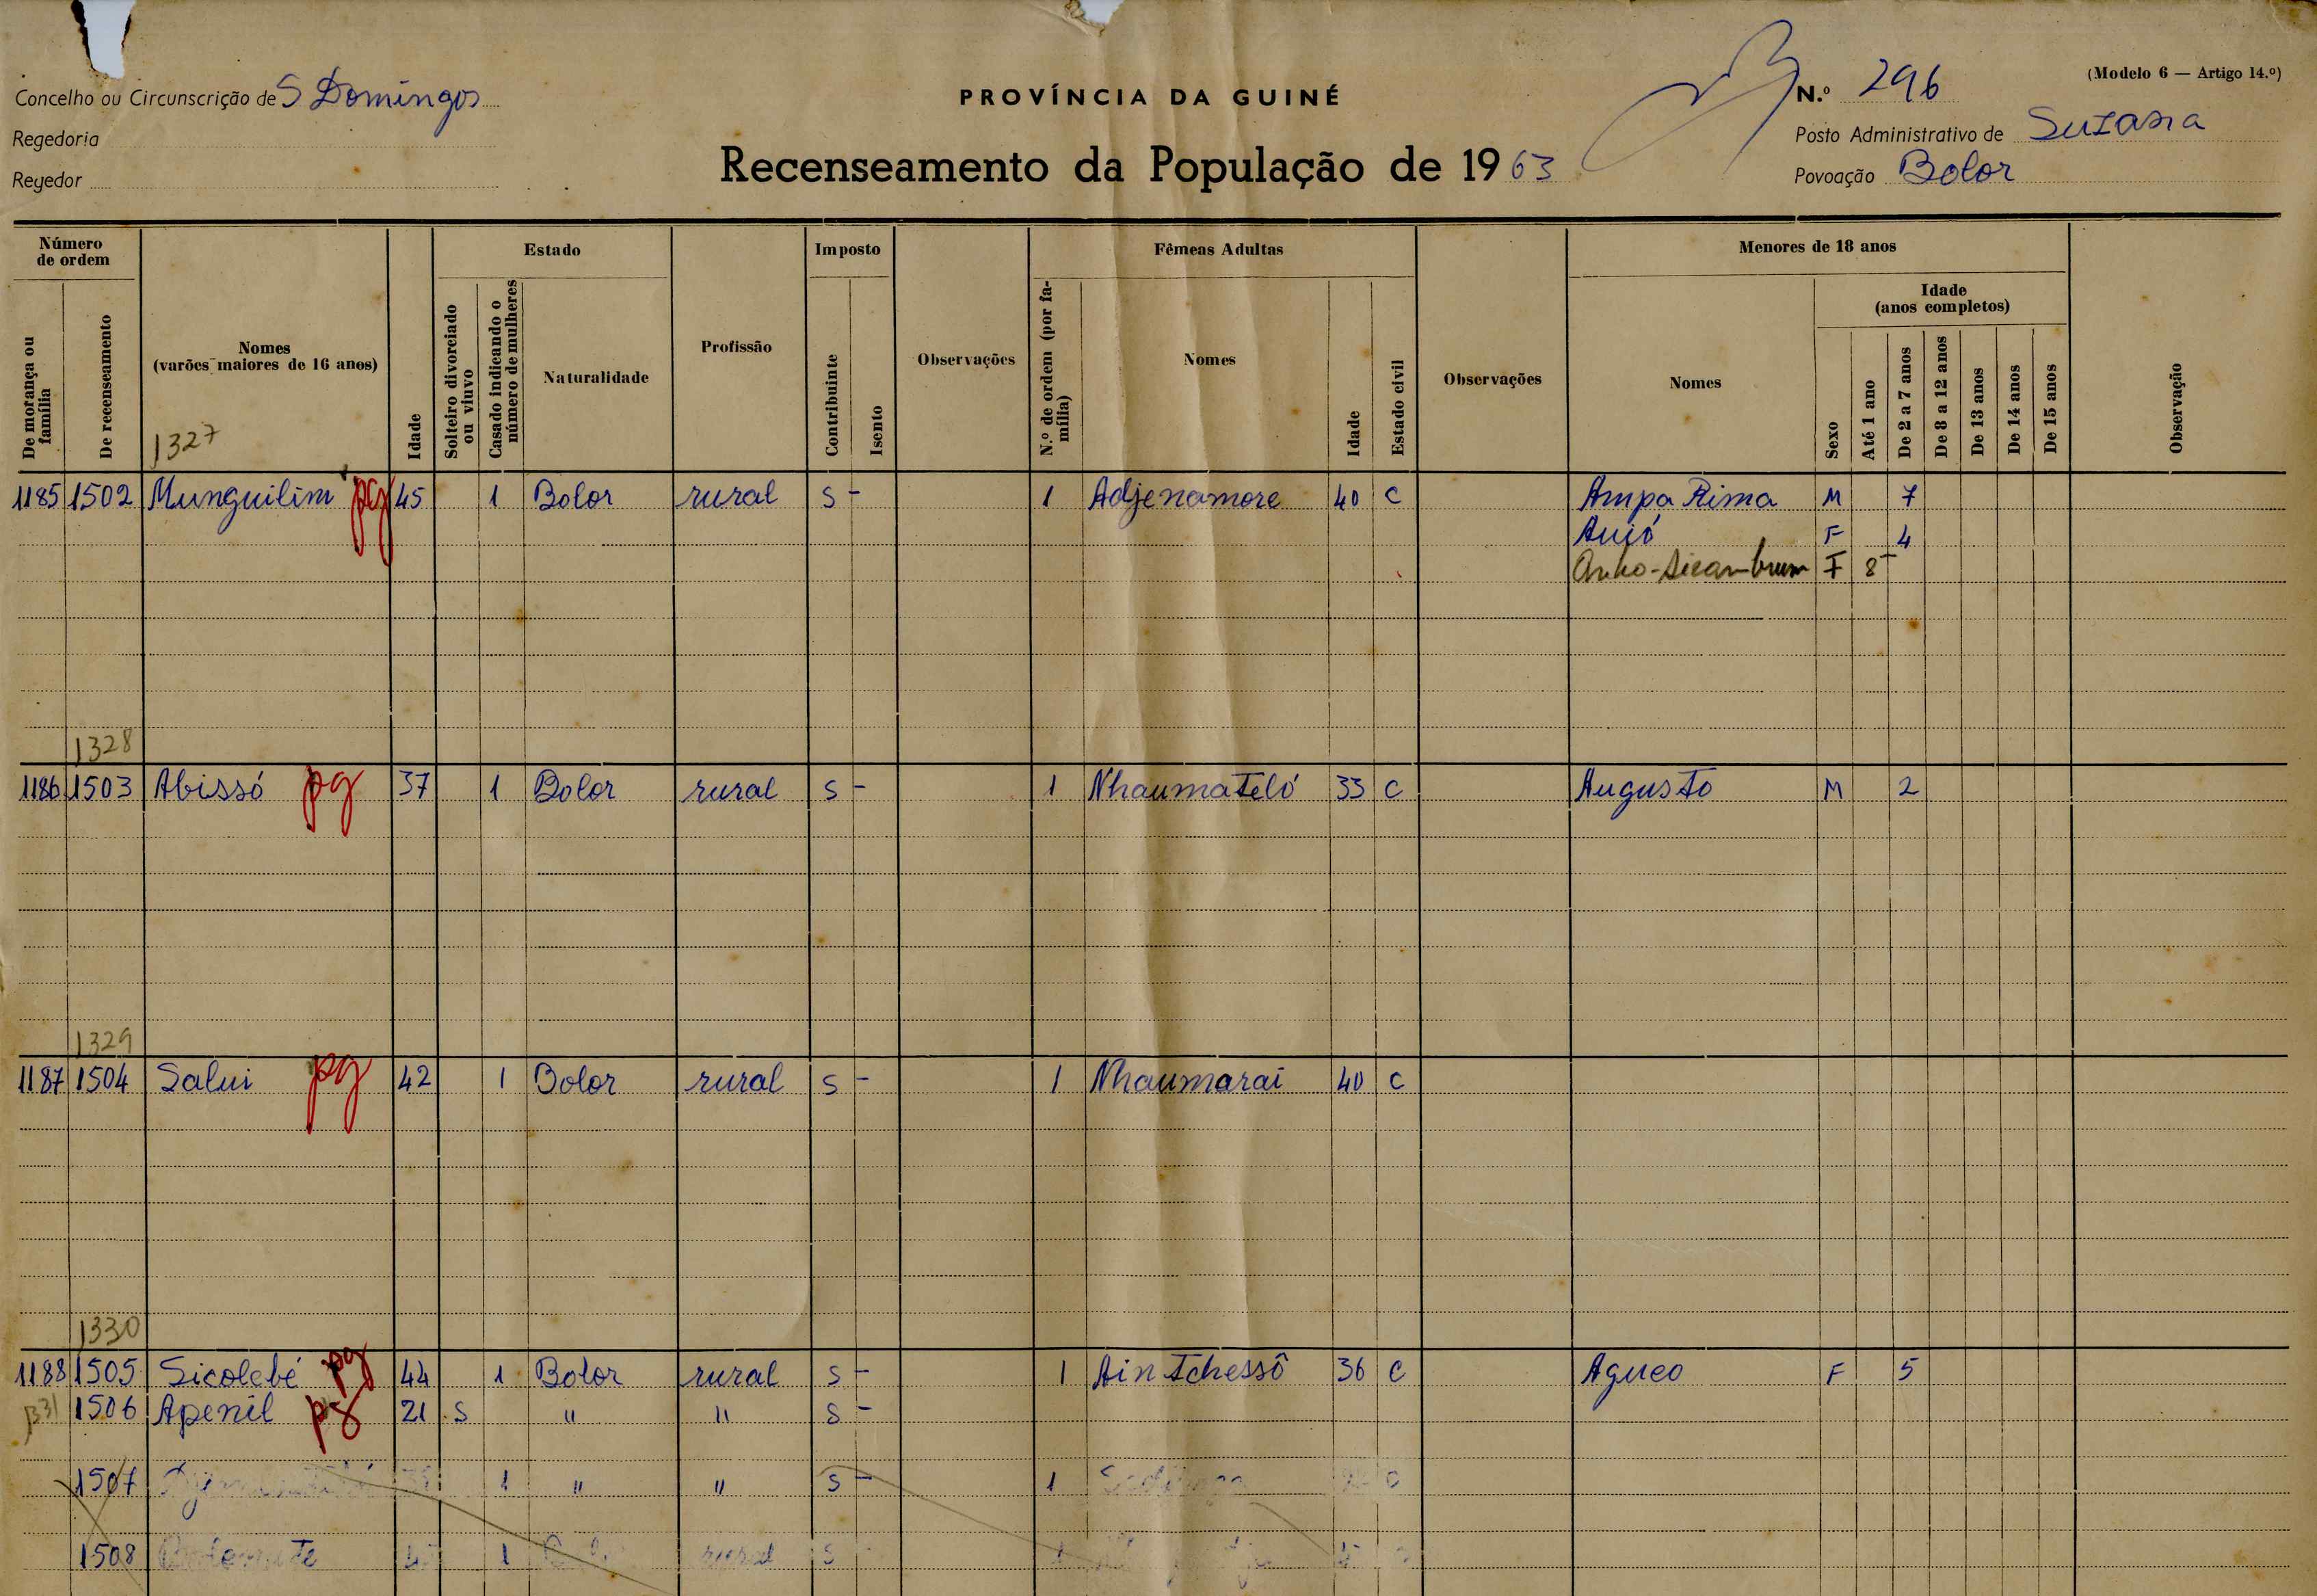 Concelho ou Circunscrição de S Domingos
Regedoria
Regedor
PROVÍNCIA DA GUINÉ
Recenseamento da População de 1963
(Modelo 6 — Artigo 14.º)
N.º 296
Posto Administrativo de Suzana
Povoação Bolor
Número de ordem
De morança ou família
De recenseamento
Nomes
(varões maiores de 16 anos)
1327
Idade
Estado
Solteiro divorciado ou viuvo
Casado indicando o número de mulheres
Naturalidade
Profissão
Imposto
Contribuinte
Isento
Observações
Fêmeas Adultas
N.º de ordem (por família)
Nomes
Idade
Estado civil
Observações
Menores de 18 anos
Nomes
Sexo
Idade
(anos completos)
Até 1 ano
De 2 a 7 anos
De 8 a 12 anos
De 13 anos
De 14 anos
De 15 anos
Observação
1185 1502 Munguilim pg 45 1 Bolor rural S - 1 Adjenamore 40 C Ampa Rima M 7
Auió F 4
F 8
1328
1186 1503 Abissó pg 37 1 Bolor rural S - 1 Nhaumateló 33 C Augusto M 2
1329
1187 1504 Salui pg 42 1 Bolor rural S - 1 Nhaumarai 40 C
1330
1188 1505 Sicolebé pg 44 1 Bolor rural S - 1 Ain Tchessô 36 C Agueo F 5
1331 1506 Apenil pg 21 S " " S -
1507 1 " " S - 1 C
1508 1 rural S 1